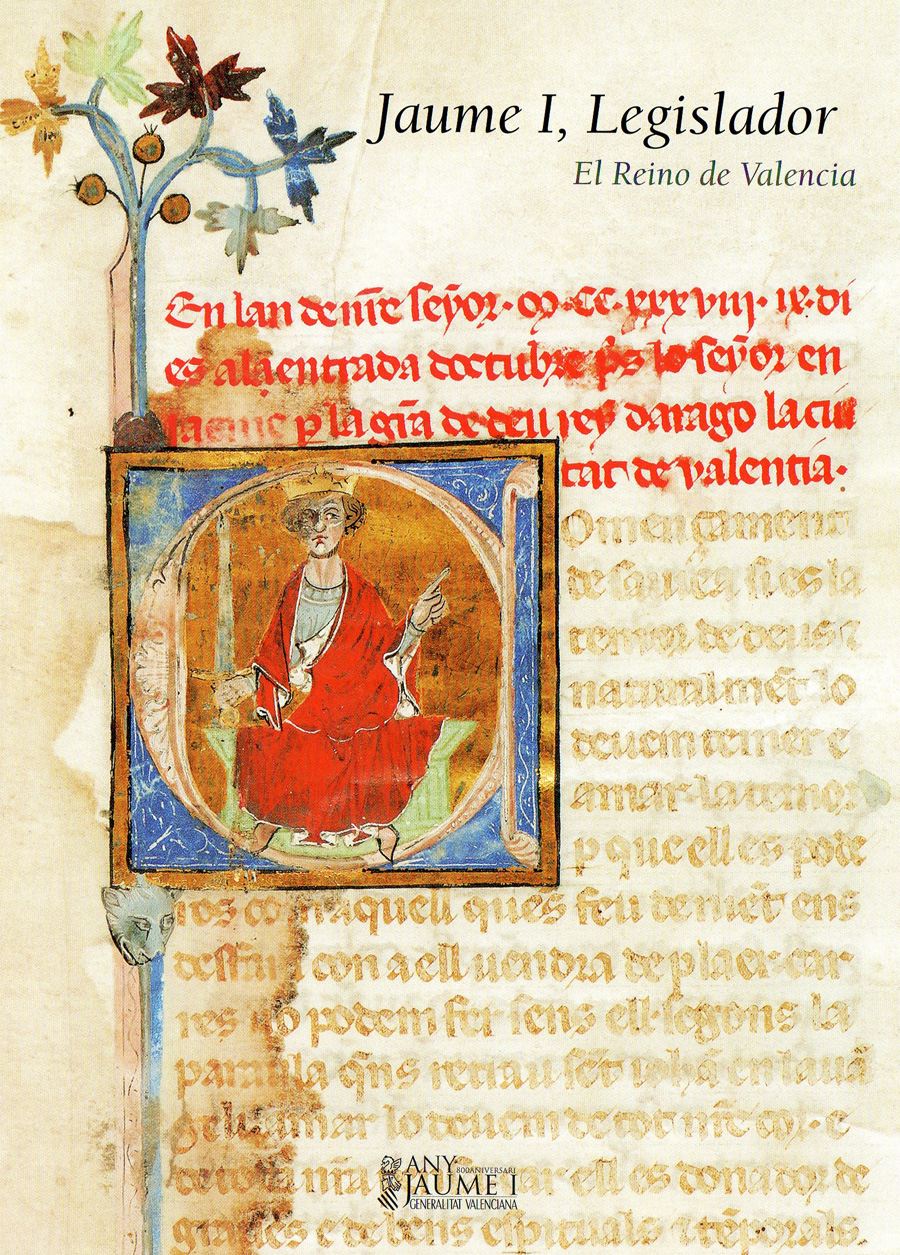 Jaume I, Legislador
El Reino de Valencia
En lan de nr̃e señor· m·CC·xxxviii· ix·di
es ala entrada doctubre p̃s lo señor en
Iacme p la gr̃a de deu rey darago la ciu
tat de valentia·
Omençament
de sauiea si es la
temor de deus
naturalmẽt lo
deuem temer e
amar·la temor
p que ell es pode
ros contra aquell ques feu de niẽt ens
desfara con a ell uendra de plaer·car
res no podem fer sens ell·segons la
paraula q̃ns retrau sẽt Iohã en laua
geli· amar lo deuem de tot nr̃e cor· e
ar ell es donador de
gracies e de bens espirituals e tẽporals·
ANY
800 ANIVERSARI
JAUME I
GENERALITAT VALENCIANA